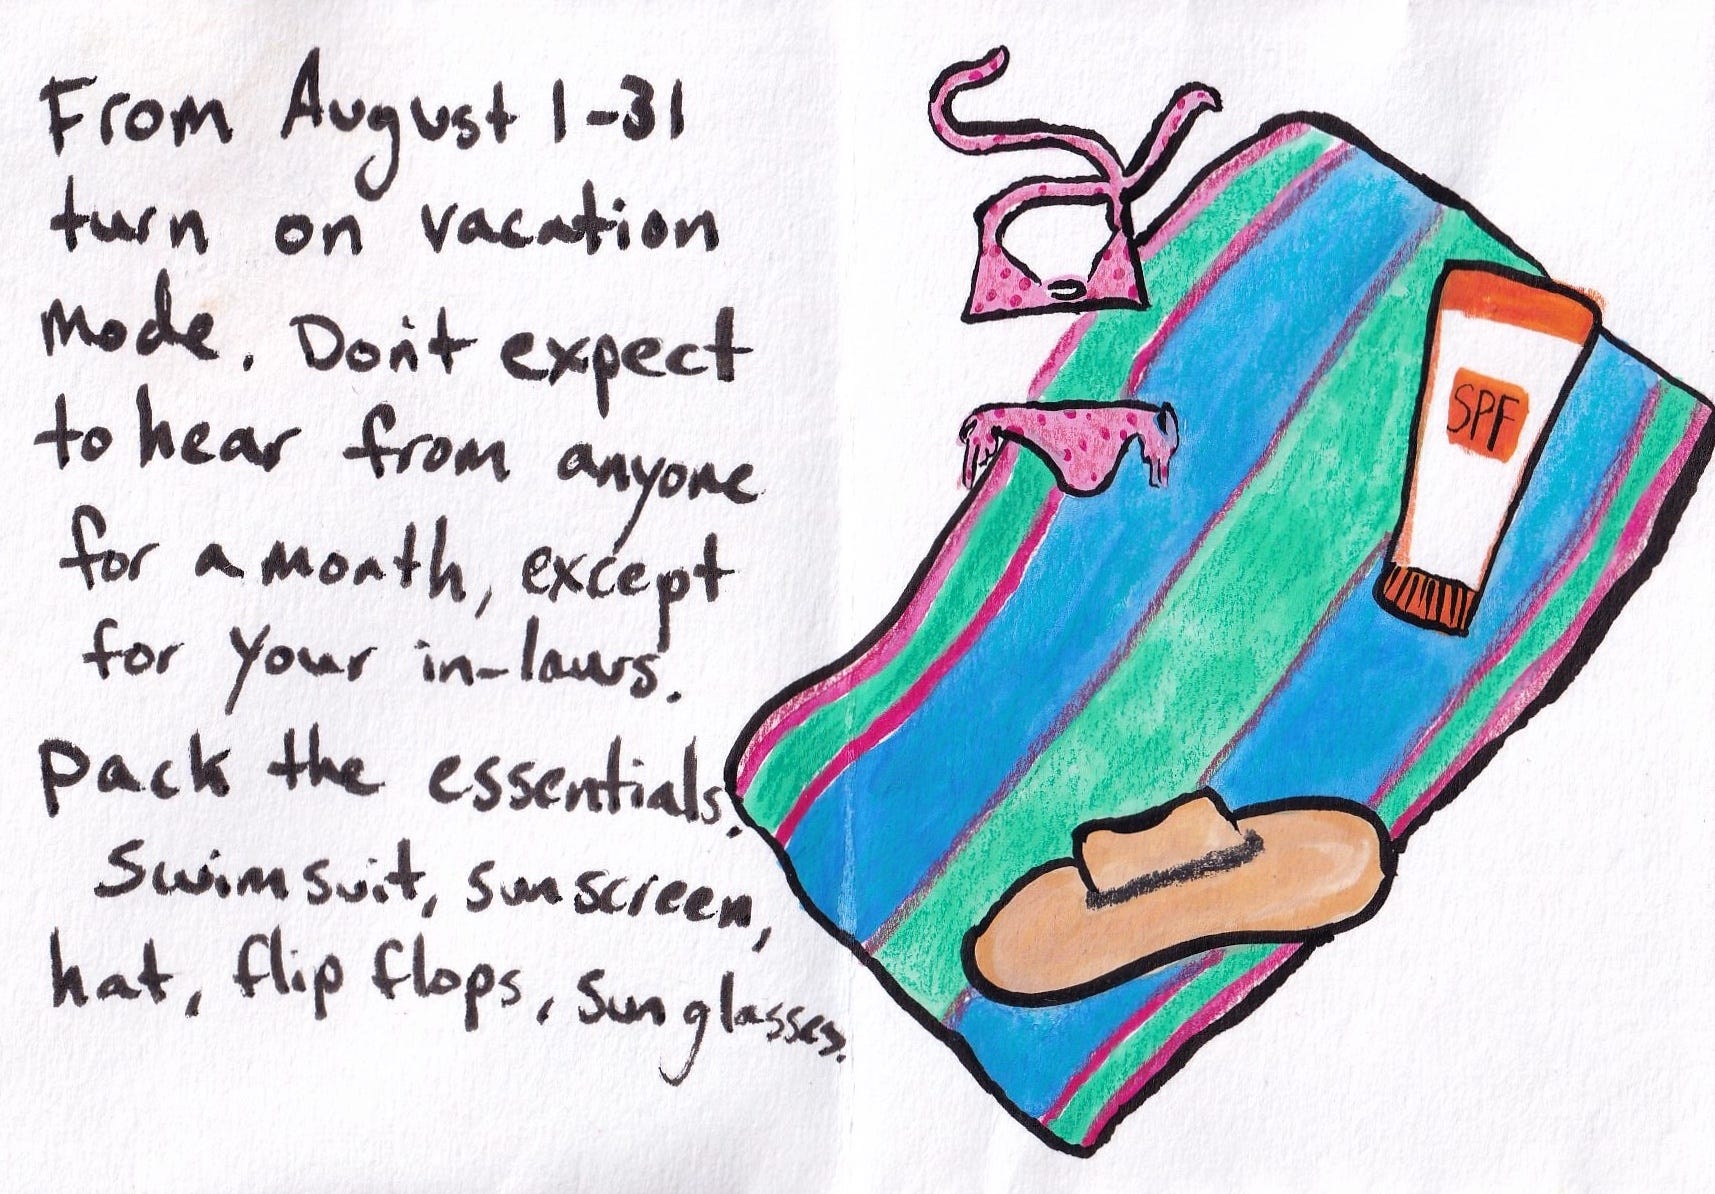 From August 1-31
turn on vacation
mode. Don't expect
to hear from anyone
for a month, except
for your in-laws.
pack the essentials.
Swimsuit, sunscreen,
hat, flip flops, sunglasses.
SPF